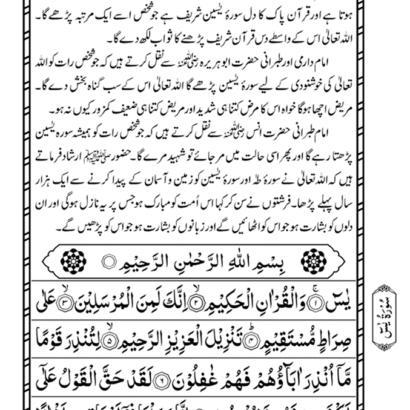 ہوتا ہے اور قرآن پاک کا دل سورۂ یٰسین شریف ہے جو شخص اسے ایک مرتبہ پڑھے گا۔
اللہ تعالیٰ اس کے واسطے دس قرآن شریف پڑھنے کا ثواب لکھ دے گا۔
امام دارمی اور طبرانی حضرت ابوہریرہ رضی اللہ عنہ سے نقل کرتے ہیں کہ جو شخص رات کو اللہ
تعالیٰ کی خوشنودی کے لیے سورۂ یٰسین پڑھے گا اللہ تعالیٰ اس کے سب گناہ بخش دے گا۔
مریض اچھا ہوگا خواہ اس کا مرض کتنا ہی شدید اور مریض کتنا ہی ضعیف کمزور کیوں نہ ہو۔
امام طبرانی حضرت انس رضی اللہ عنہ سے نقل کرتے ہیں کہ جو شخص رات کو ہمیشہ سورہ یٰسین
پڑھتا رہے گا اور پھر اسی حالت میں مر جائے تو شہید مرے گا۔ حضور ﷺ ارشاد فرماتے
ہیں کہ اللہ تعالیٰ نے سورۂ طٰہٰ اور سورۂ یٰسین کو زمین و آسمان کے پیدا کرنے سے ایک ہزار
سال پہلے پڑھا۔ فرشتوں نے سن کر کہا اس اُمت کو مبارک ہو جس پر یہ نازل ہوگی اور ان
دلوں کو بشارت ہو جو اس کو اٹھائیں گے اور زبانوں کو بشارت ہو جو اس کو پڑھیں گے۔
بِسْمِ اللهِ الرَّحْمٰنِ الرَّحِيْمِ
يٰسٓ ۝۱ وَالْقُرْاٰنِ الْحَكِيْمِ ۝۲ اِنَّكَ لَمِنَ الْمُرْسَلِيْنَ ۝۳ عَلٰى
صِرَاطٍ مُّسْتَقِيْمٍ ۝۴ تَنْزِيْلَ الْعَزِيْزِ الرَّحِيْمِ ۝۵ لِتُنْذِرَ قَوْمًا
مَّآ اُنْذِرَ اٰبَآؤُهُمْ فَهُمْ غٰفِلُوْنَ ۝۶ لَقَدْ حَقَّ الْقَوْلُ عَلٰٓى
سُوْرَۃُ یٰسٓ